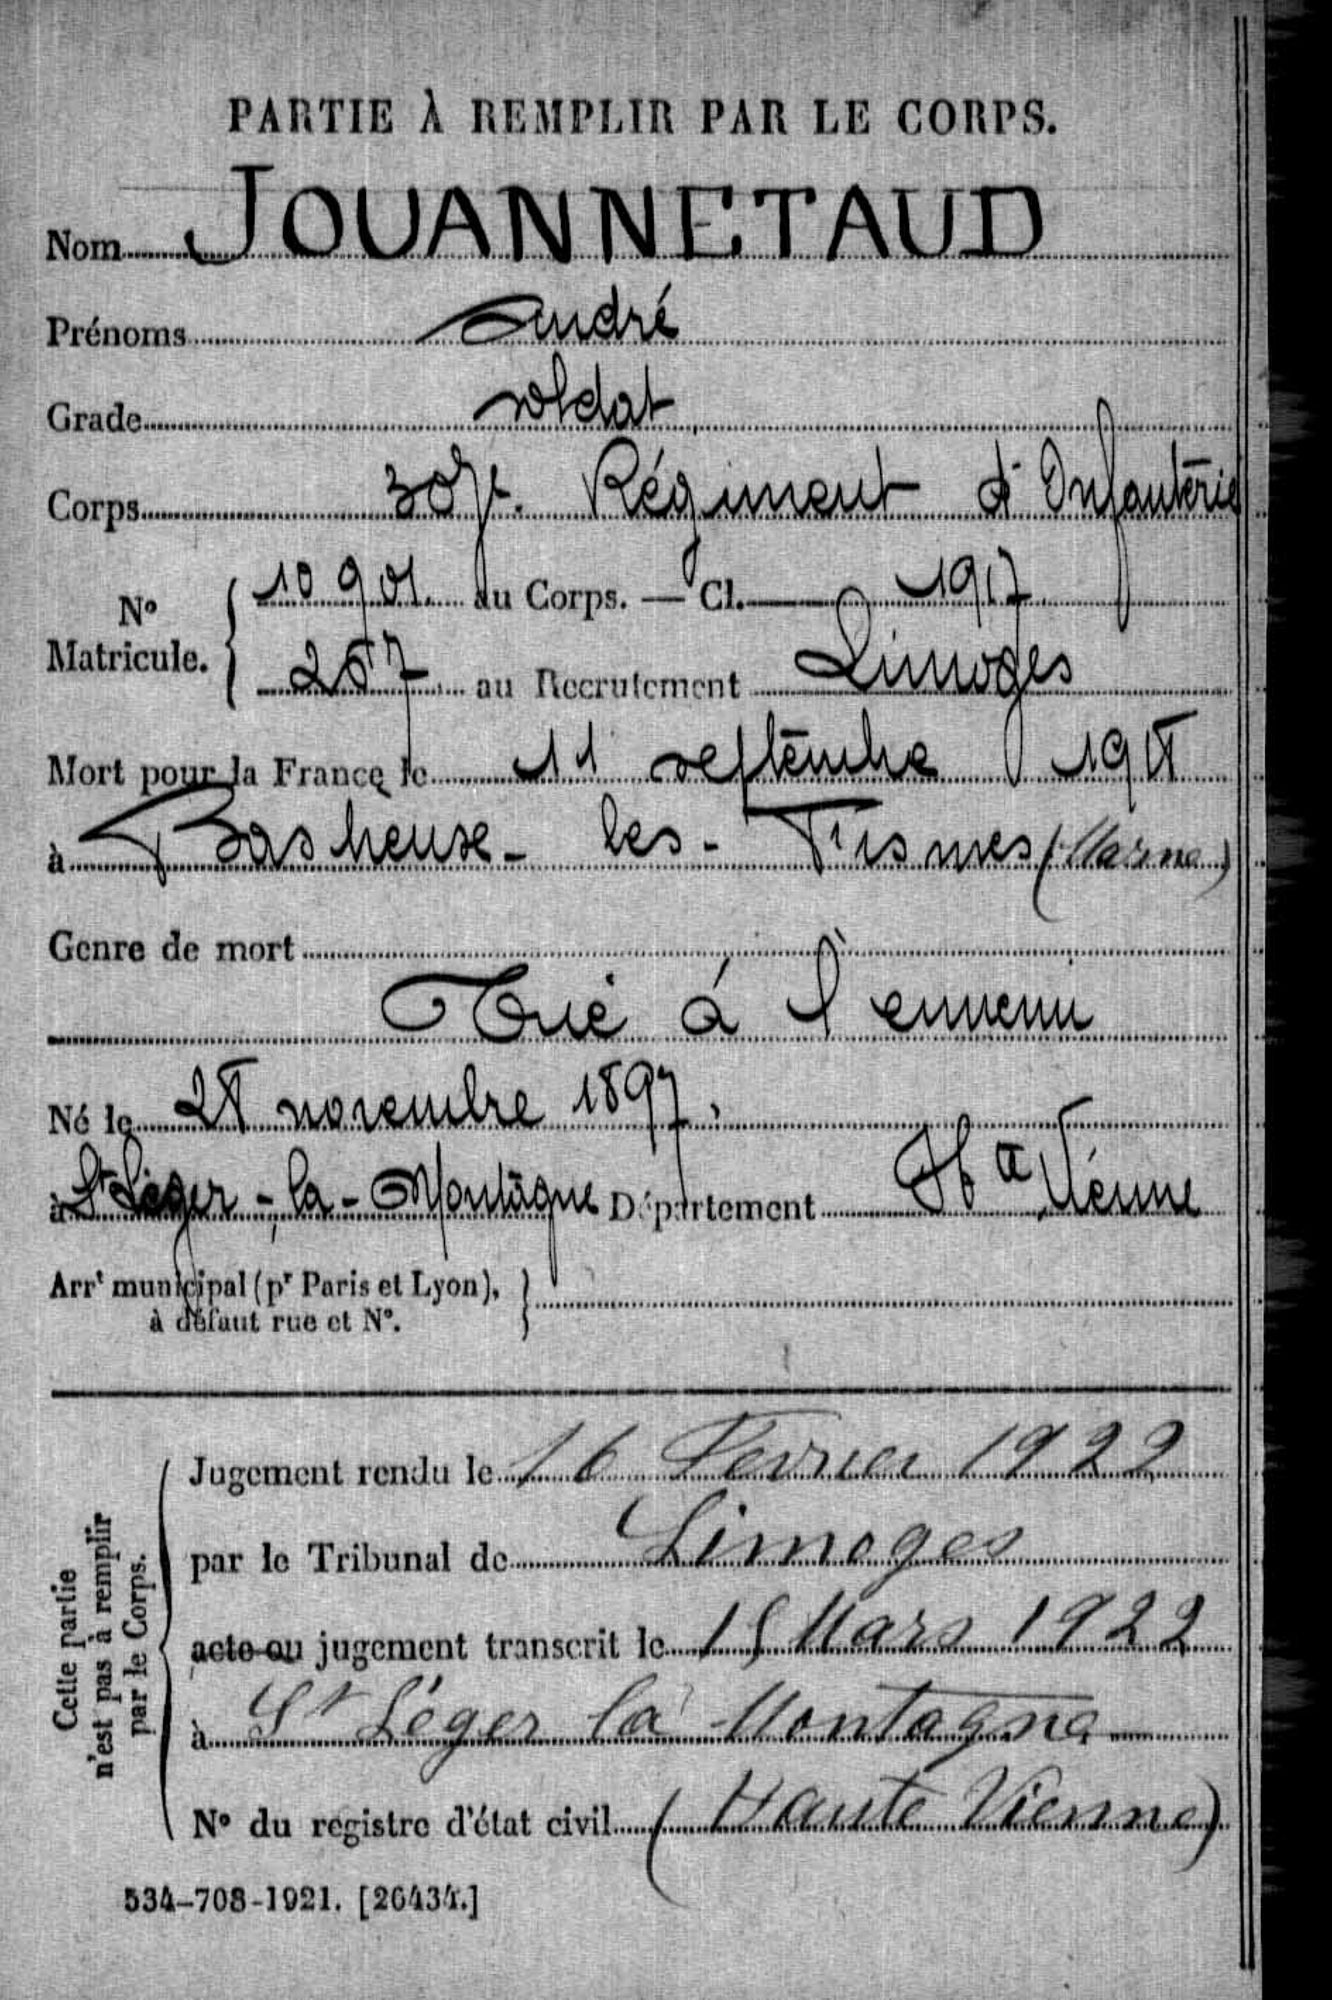 PARTIE À REMPLIR PAR LE CORPS.
Nom JOUANNETAUD
Prénoms André
Grade soldat
Corps 307e. Régiment d'Infanterie
N° Matricule. { 10901. au Corps. — Cl. 1917
267 au Recrutement Limoges
Mort pour la France le 11 septembre 1918
à Baslieux - les - Fismes (Marne)
Genre de mort
Tué à l'ennemi
Né le 28 novembre 1897.
à St Léger - la - Montagne Département Hte Vienne
Arrt municipal (pr Paris et Lyon), }
à défaut rue et N°.
Cette partie
n'est pas à remplir
par le Corps.
Jugement rendu le 16 Fevrier 1922
par le Tribunal de Limoges
acte ou jugement transcrit le 15 Mars 1922
à St Léger la Montagne
N° du registre d'état civil (Haute Vienne)
534-708-1921. [26434.]